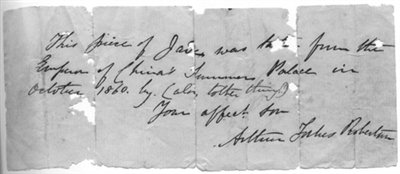 This piece of Jade was ta from the
Emperor of China's Summer Palace in
October 1860. by (alo tother things)
Your affect. son
Arthur Forbes Robertson